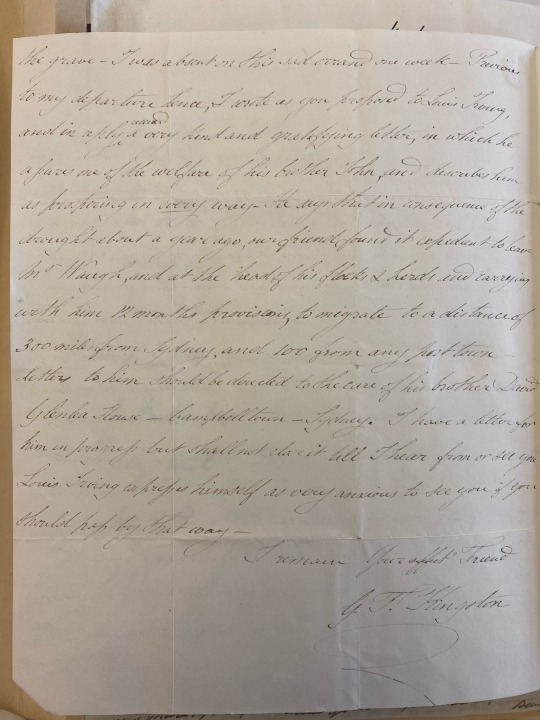 the grave – I was absent on this sad errand one week – Previous
to my departure hence, I wrote as you proposed to Louis Irving,
and in reply received a very kind and gratifying letter, in which he
assures me of the welfare of his brother John, and describes him
as prospering in every way – He says that in consequence of the
drought about a year ago, our friend found it expedient to leave
Mr Waugh, and at the head of his flocks & herds and carrying
with him 12 months provisions, to migrate to a distance of
300 miles from Sydney, and 100 from any post town –
letters to him should be directed to the care of his brother David
House – Campbelltown – Sydney. I have a letter for
him in progress but shall not close it till I hear from or see you
Louis Irving expresses himself as very anxious to see you if you
should pass by that way –
I remain Your affect Friend
G. T. Kingston